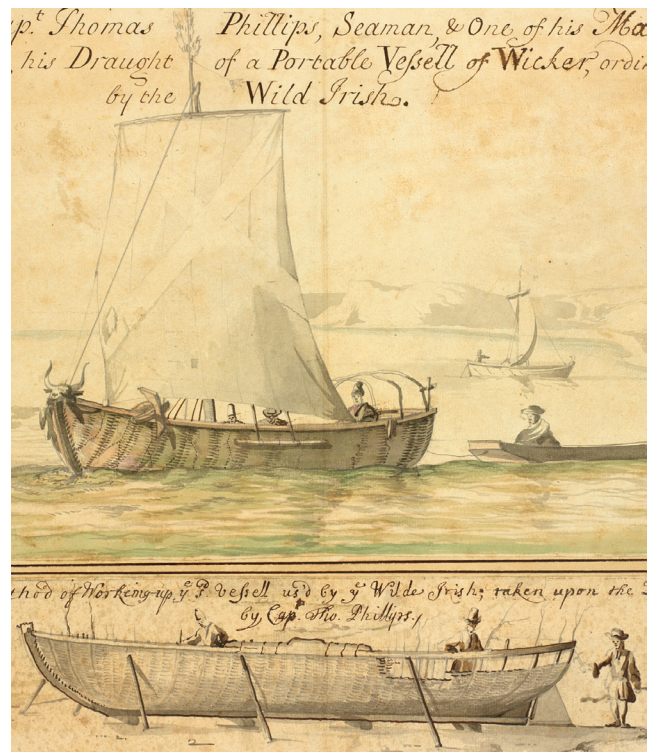 Thomas Phillips, Seaman, & One of his
his Draught of a Portable Veſsell of Wicker,
by the Wild Irish.
of Working up yᵉ veſsell us'd by yᵉ Wilde Irish; taken upon the
by Capᵗ Tho. Phillips,